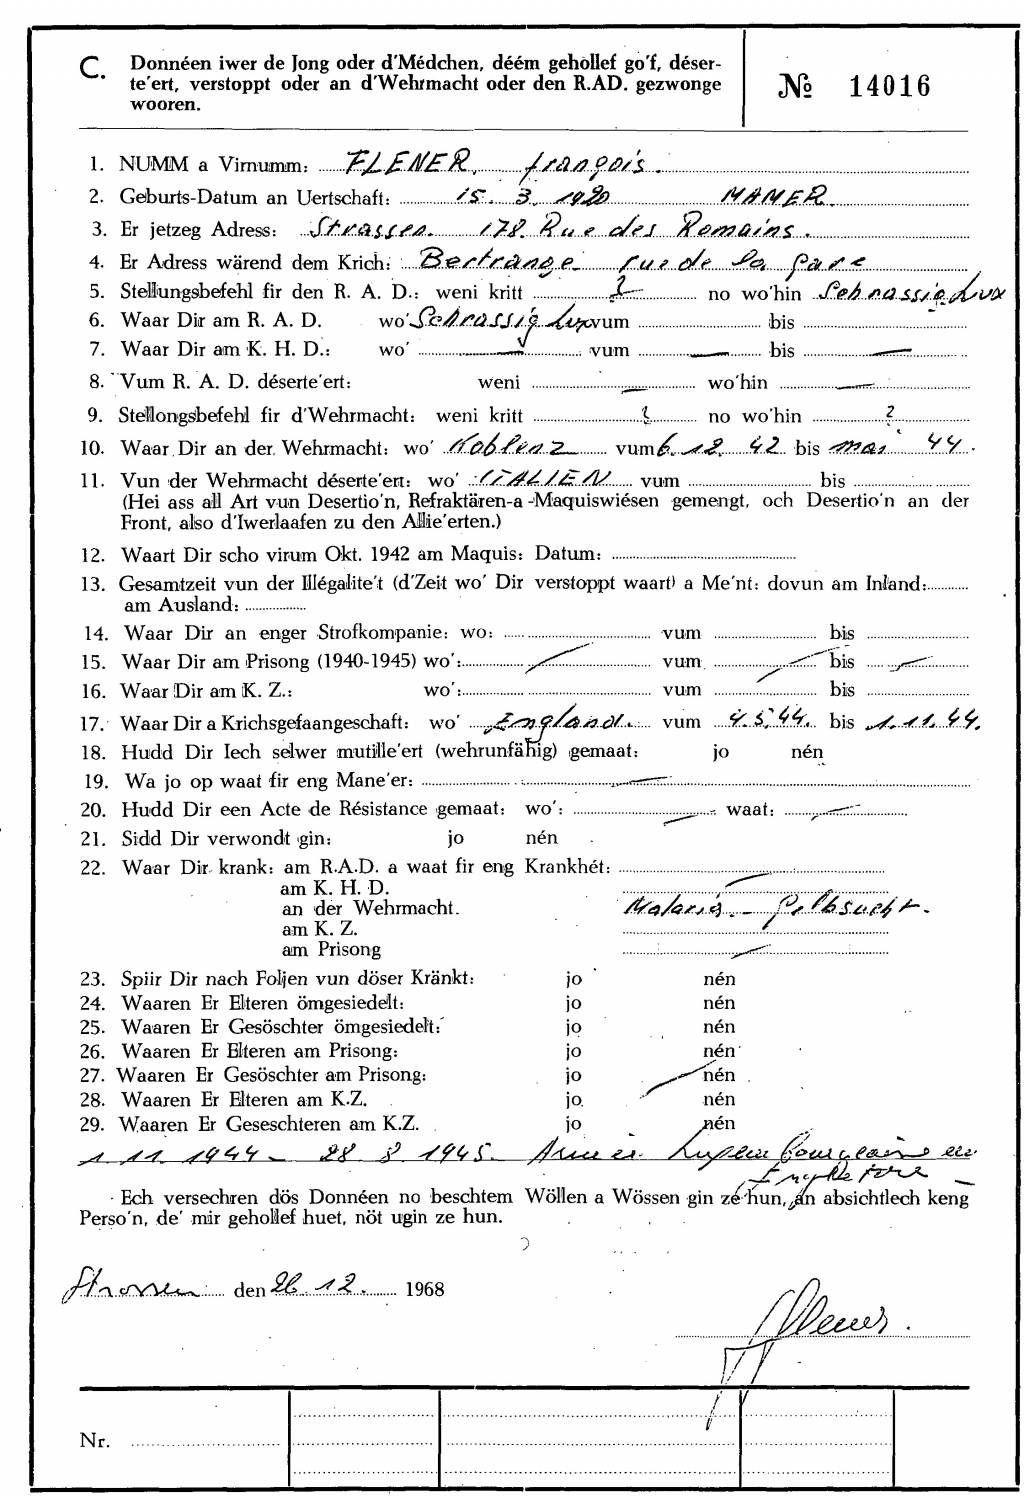 C. Donnéen iwer de Jong oder d'Médchen, déém gehöllef go'f, déser-
te'ert, verstoppt oder an d'Wehrmacht oder den R.AD. gezwonge
wooren.
№ 14016
1. NUMM a Virnumm: FLENER, françois.
2. Geburts-Datum an Uertschaft: 15. 3. 1920 MAMER.
3. Er jetzeg Adress: Strassen 178. Rue des Romains.
4. Er Adress wärend dem Krich: Bertrange rue de la gare
5. Stellungsbefehl fir den R. A. D.: weni kritt ? no wo'hin Schrassig Lux
6. Waar Dir am R. A. D. wo' Schrassig Lux vum bis
7. Waar Dir am K. H. D.: wo' — vum — bis —
8. Vum R. A. D. déserte'ert: weni — wo'hin —
9. Stellongsbefehl fir d'Wehrmacht: weni kritt ? no wo'hin ?
10. Waar Dir an der Wehrmacht: wo' Koblenz vum 6. 12. 42 bis mai 44.
11. Vun der Wehrmacht déserte'ert: wo' ITALIEN vum bis
(Hei ass all Art vun Desertio'n, Refraktären-a -Maquiswiésen gemengt, och Desertio'n an der
Front, also d'Iwerlaafen zu den Allie'erten.)
12. Waart Dir scho virum Okt. 1942 am Maquis: Datum:
13. Gesamtzeit vun der Illégalite't (d'Zeit wo' Dir verstoppt waart) a Me'nt: dovun am Inland:
am Ausland:
14. Waar Dir an enger Strofkompanie: wo: vum bis
15. Waar Dir am Prisong (1940-1945) wo': vum bis
16. Waar Dir am K. Z.: wo': vum bis
17. Waar Dir a Krichsgefaangeschaft: wo' England. vum 4.5.44. bis 1.11.44.
18. Hudd Dir Iech selwer mutille'ert (wehrunfähig) gemaat: jo nén
19. Wa jo op waat fir eng Mane'er: —
20. Hudd Dir een Acte de Résistance gemaat: wo': — waat: —
21. Sidd Dir verwondt gin: jo nén
22. Waar Dir krank: am R.A.D. a waat fir eng Krankhét: —
am K. H. D.
an der Wehrmacht. Malaria. - Gelbsucht.
am K. Z.
am Prisong —
23. Spiir Dir nach Foljen vun döser Kränkt: jo nén
24. Waaren Er Elteren ömgesiedelt: jo nén
25. Waaren Er Gesöschter ömgesiedelt: jo nén
26. Waaren Er Elteren am Prisong: jo nén
27. Waaren Er Gesöschter am Prisong: jo nén
28. Waaren Er Elteren am K.Z. jo nén
29. Waaren Er Geseschteren am K.Z. jo nén
1 11 1944 - 28 8 1945. Armée Luxembourgeoise en
Engleterre
Ech versechren dös Donnéen no beschtem Wöllen a Wössen gin ze hun, an absichtlech keng
Perso'n, de' mir gehollef huet, nöt ugin ze hun.
Strassen den 26. 12. 1968
Flener.
Nr.